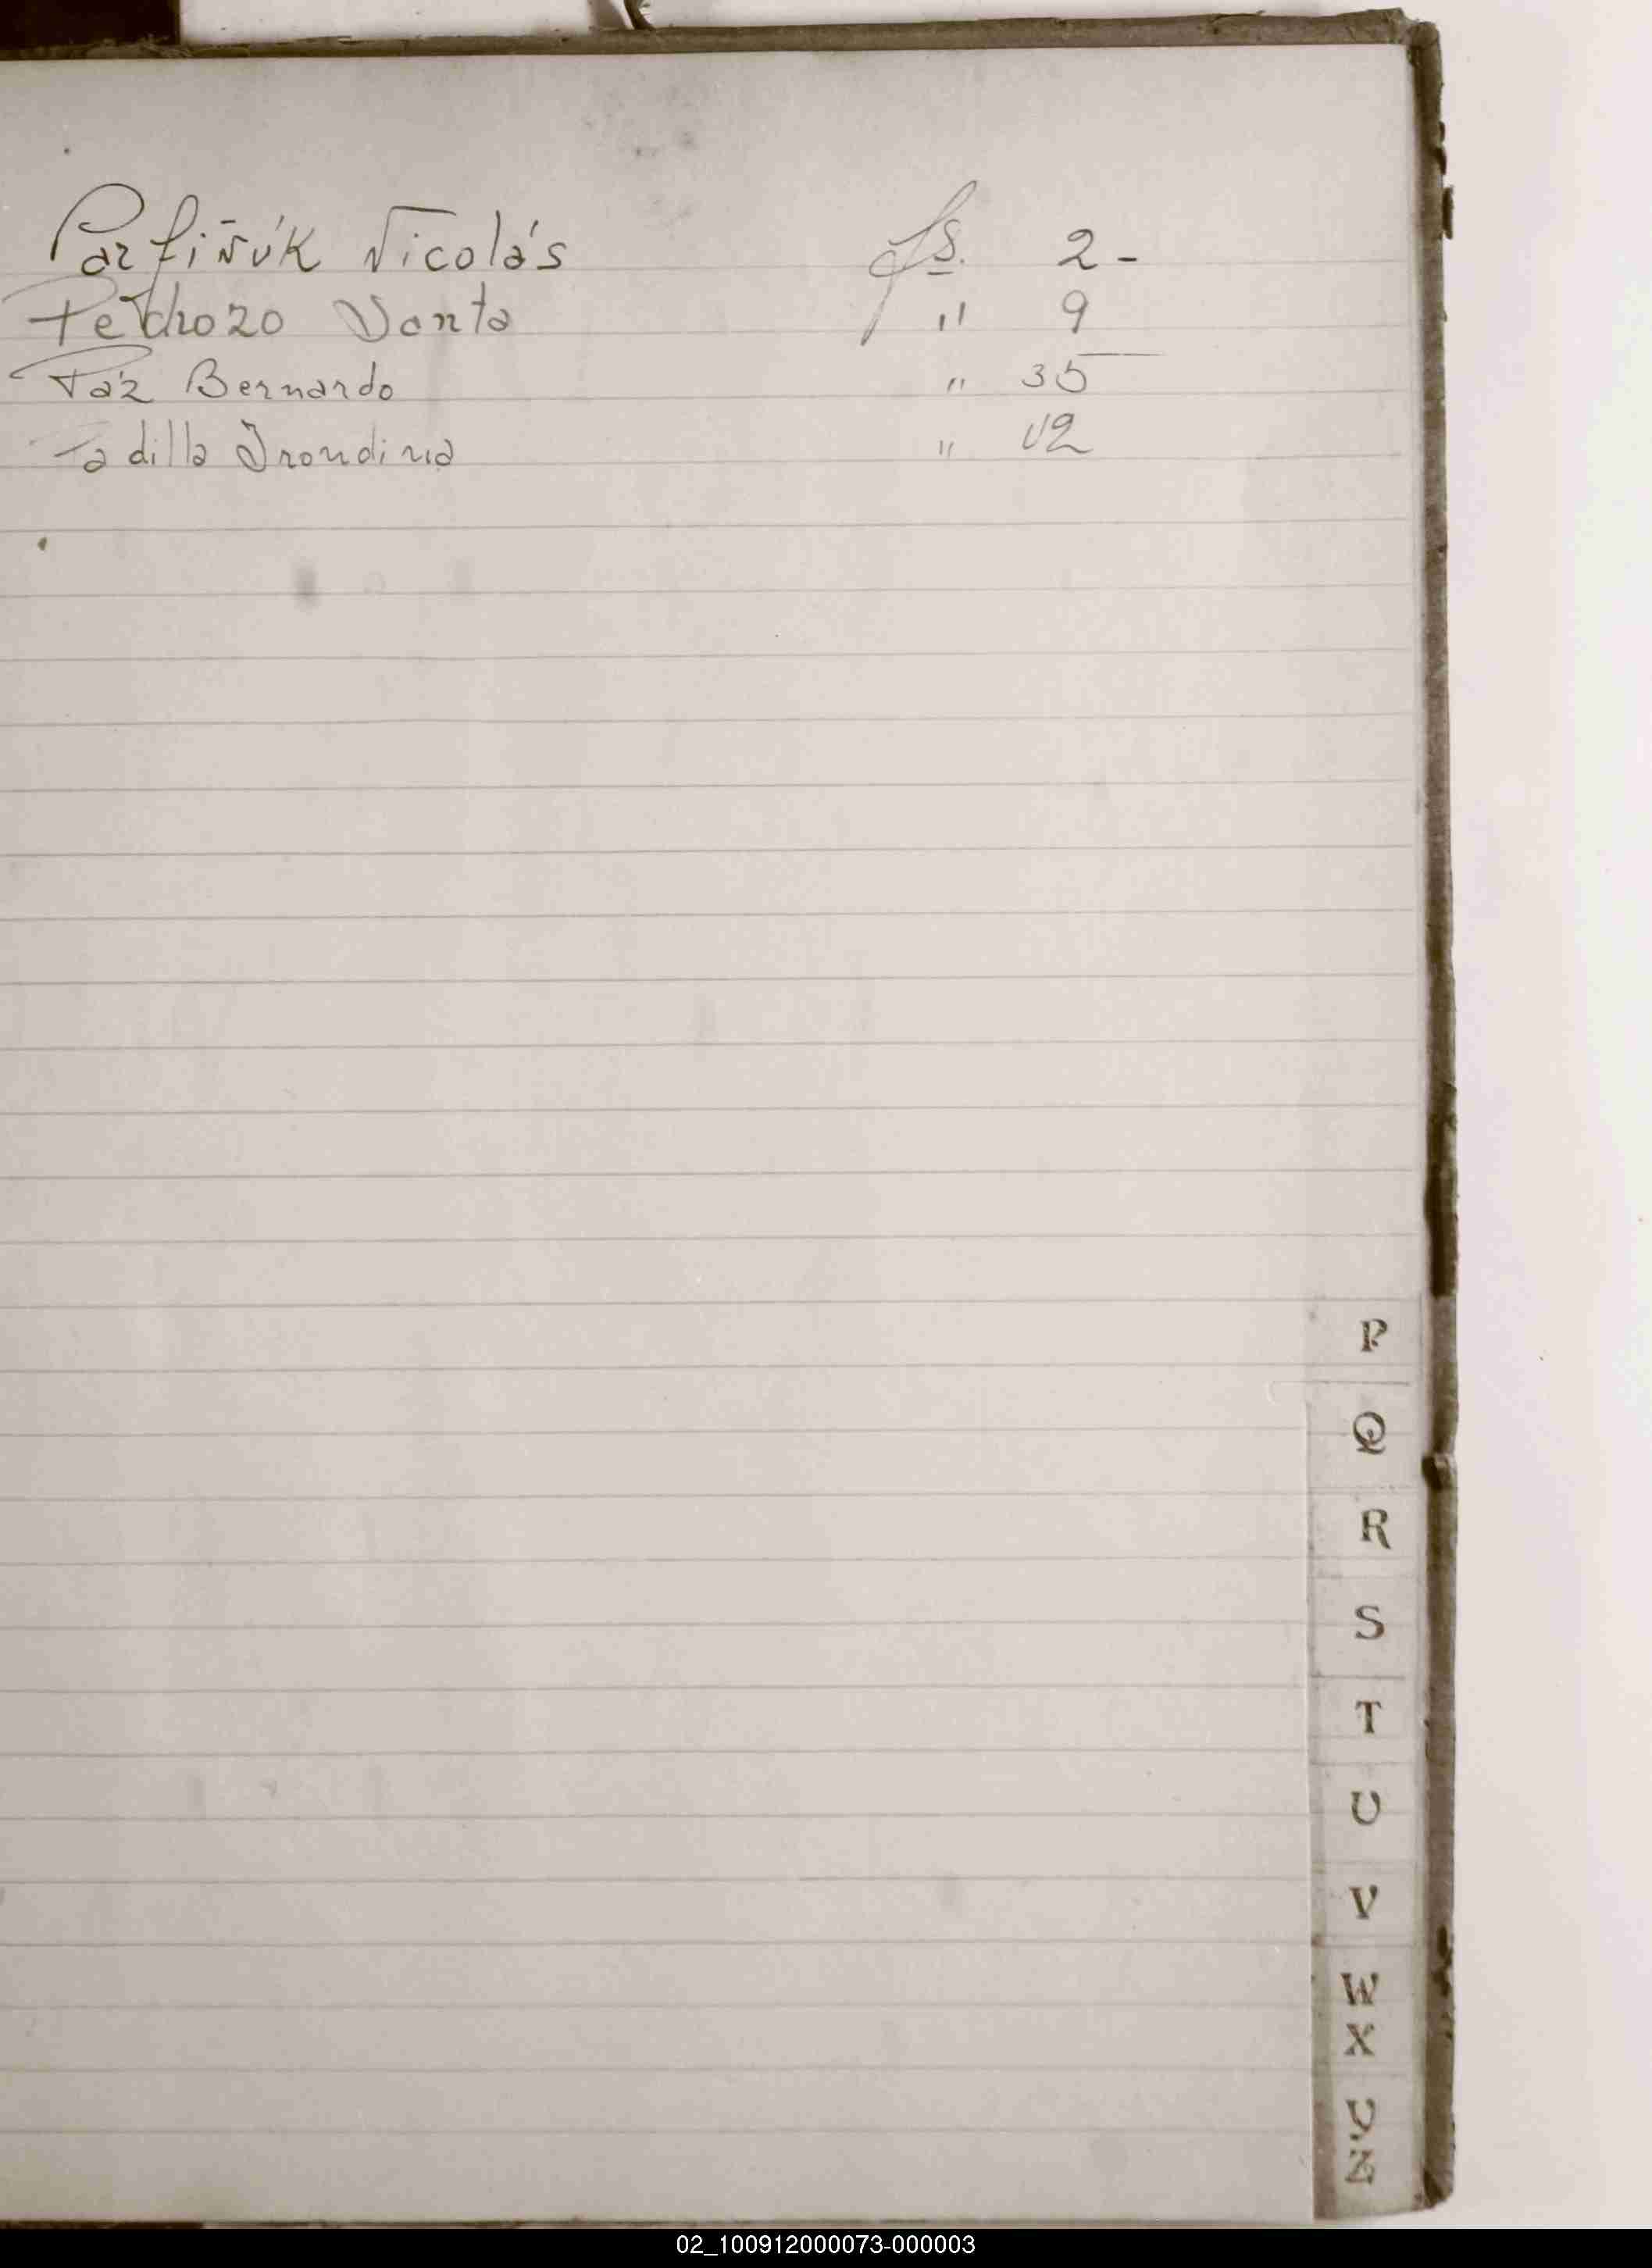 Parfiñúk Nicolás fs. 2-
Pedrozo " 9
Páz Bernardo " 35
Padilla " 42
P
Q
R
S
T
U
V
W
X
Y
Z
02_100912000073-000003